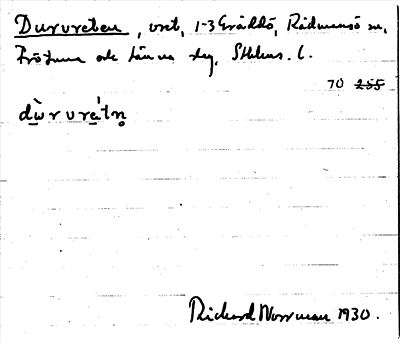 Durureten, ort, 1-3 Gräddö, Rådmansö sn,
Frötuna och Länna skg, Sthlms. l.
70 255
dùrurétn̥
Richard Norrman 1930.